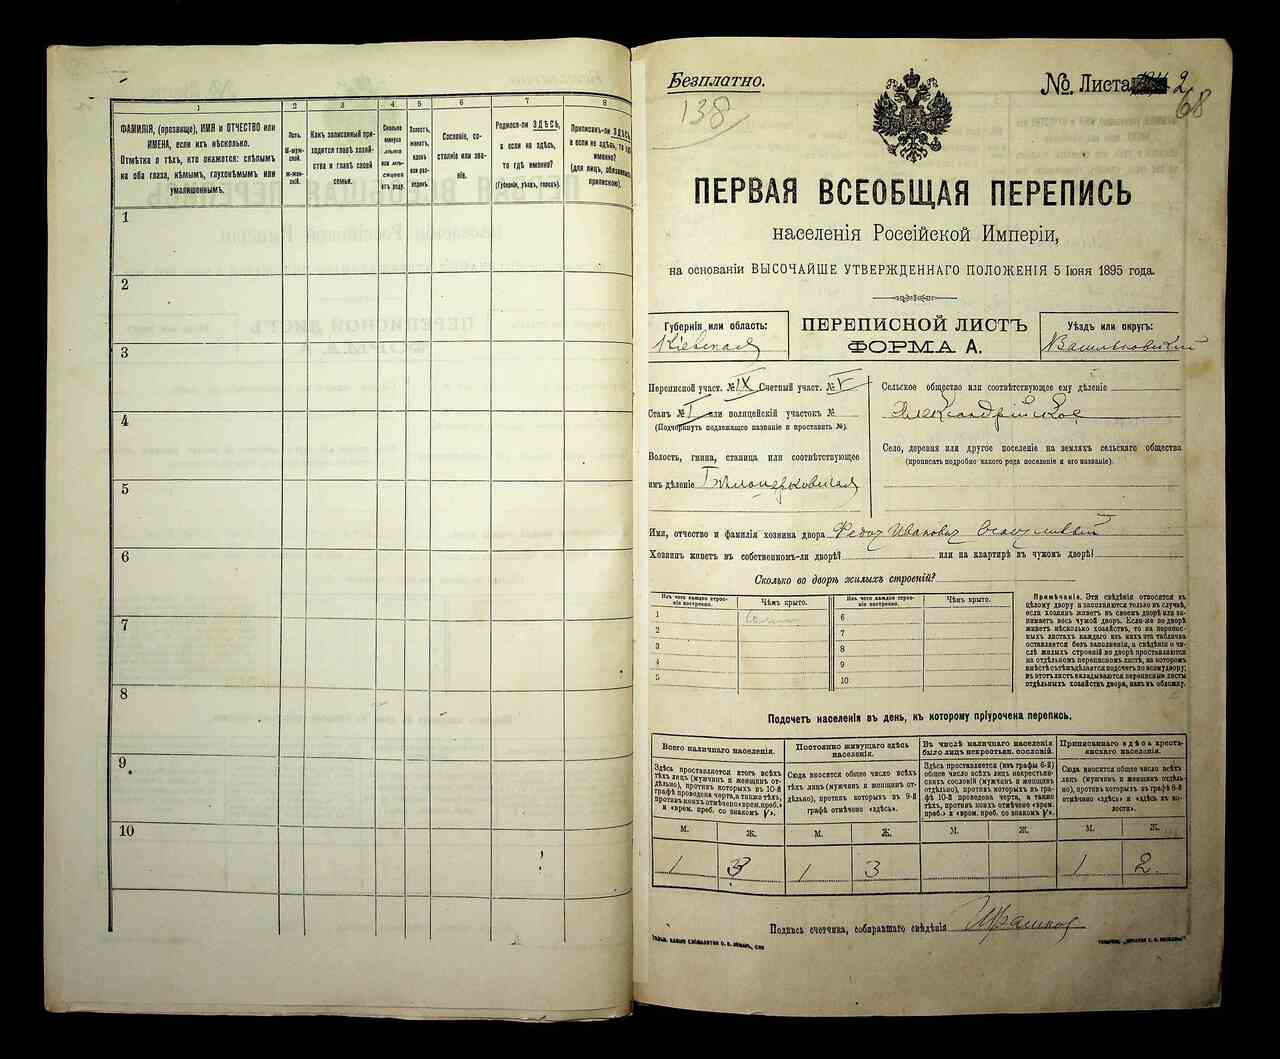 1
2
3
4
5
6
7
8
ФАМИЛІЯ, (прозвище), ИМЯ и ОТЧЕСТВО или
ИМЕНА, если ихъ нѣсколько.
Отмѣтка о тѣхъ, кто окажется: слѣпымъ
на оба глаза, нѣмымъ, глухонѣмымъ или
умалишеннымъ.
Полъ.
М-муж-
ской.
ж-жен-
скій.
Какъ записанный при-
ходится главѣ хозяй-
ства и главѣ своей
семьи.
Сколько
минуло
лѣтъ
или мѣ-
сяцевъ
отъ роду.
Холостъ,
женатъ,
вдовъ
или раз-
веденъ.
Сословіе, со-
стояніе или зва-
ніе.
Родился-ли ЗДѢСЬ,
а если не здѣсь,
то гдѣ именно?
(Губернія, уѣздъ, городъ).
Приписанъ-ли ЗДѢСЬ,
а если не здѣсь, то гдѣ
именно?
(для лицъ, обязанныхъ
припискою).
1
2
3
4
5
6
7
8
9
10
Безплатно.
№ Листа 2
138
68
ПЕРВАЯ ВСЕОБЩАЯ ПЕРЕПИСЬ
населенія Россійской Имперіи,
на основаніи ВЫСОЧАЙШЕ УТВЕРЖДЕННАГО ПОЛОЖЕНІЯ 5 Іюня 1895 года.
Губернія или область:
Кіевская
ПЕРЕПИСНОЙ ЛИСТЪ
ФОРМА А.
Уѣздъ или округъ:
Васильковскій
Переписной участ. № IX Счетный участ. № V
Станъ № I или полицейскій участокъ №
(Подчеркнуть подлежащее названіе и проставить №).
Волость, гмина, станица или соотвѣтствующее
имъ дѣленіе Бѣлоцерковская
Сельское общество или соотвѣтствующее ему дѣленіе
Александрійское
Село, деревня или другое поселеніе на земляхъ сельскаго общества
(прописать подробно какого рода поселеніе и его названіе).
Имя, отчество и фамилія хозяина двора Федор Иванович
Хозяинъ живетъ въ собственномъ-ли дворѣ? или на квартирѣ въ чужомъ дворѣ?
Сколько во дворѣ жилыхъ строеній?
Изъ чего каждое строе-
ніе построено.
Чѣмъ крыто.
Изъ чего каждое строе-
ніе построено.
Чѣмъ крыто.
1
2
3
4
5
6
7
8
9
10
Примѣчаніе. Эти свѣдѣнія относятся къ
цѣлому двору и заполняются только въ случаѣ,
если хозяинъ живетъ въ своемъ дворѣ или за-
нимаетъ весь чужой дворъ. Если-же во дворѣ
живетъ нѣсколько хозяйствъ, то на перепис-
ныхъ листахъ каждаго изъ нихъ эта табличка
оставляется безъ заполненія, а свѣдѣнія о чи-
слѣ жилыхъ строеній во дворѣ проставляются
на отдѣльномъ переписномъ листѣ, на которомъ
вмѣстѣ съ тѣмъ дѣлается подсчетъ по всему двору;
въ этотъ листъ вкладываются переписные листы
отдѣльныхъ хозяйствъ двора, какъ въ обложку.
Подсчетъ населенія въ день, къ которому пріурочена перепись.
Всего наличнаго населенія.
Здѣсь проставляется итогъ всѣхъ
тѣхъ лицъ (мужчинъ и женщинъ от-
дѣльно), противъ которыхъ въ 10-й
графѣ проведена черта, а также тѣхъ,
противъ коихъ отмѣчено «врем. преб.»
и «врем. преб. со знакомъ V».
Постоянно живущаго здѣсь
населенія.
Сюда вносится общее число всѣхъ
тѣхъ лицъ (мужчинъ и женщинъ от-
дѣльно), противъ которыхъ въ 9-й
графѣ отмѣчено «здѣсь».
Въ числѣ наличнаго населенія
было лицъ некрестьян. сословій.
Здѣсь проставляется (изъ графы 6-й)
общее число всѣхъ лицъ некрестьян-
скихъ сословій (мужчинъ и женщинъ
отдѣльно), противъ которыхъ въ гра-
фѣ 10-й проведена черта, а также
тѣхъ, противъ коихъ отмѣчено «врем.
преб.» и «врем. преб. со знакомъ V».
Приписаннаго здѣсь кресть-
янскаго населенія.
Сюда вносится общее число всѣхъ
лицъ (мужчинъ и женщинъ отдѣль-
но), противъ которыхъ въ графѣ 8-й
отмѣчено «здѣсь» и «здѣсь въ во-
лости».
М. Ж. М. Ж. М. Ж. М. Ж.
1 3 1 3 1 2
Подпись счетчика, собиравшаго свѣдѣнія